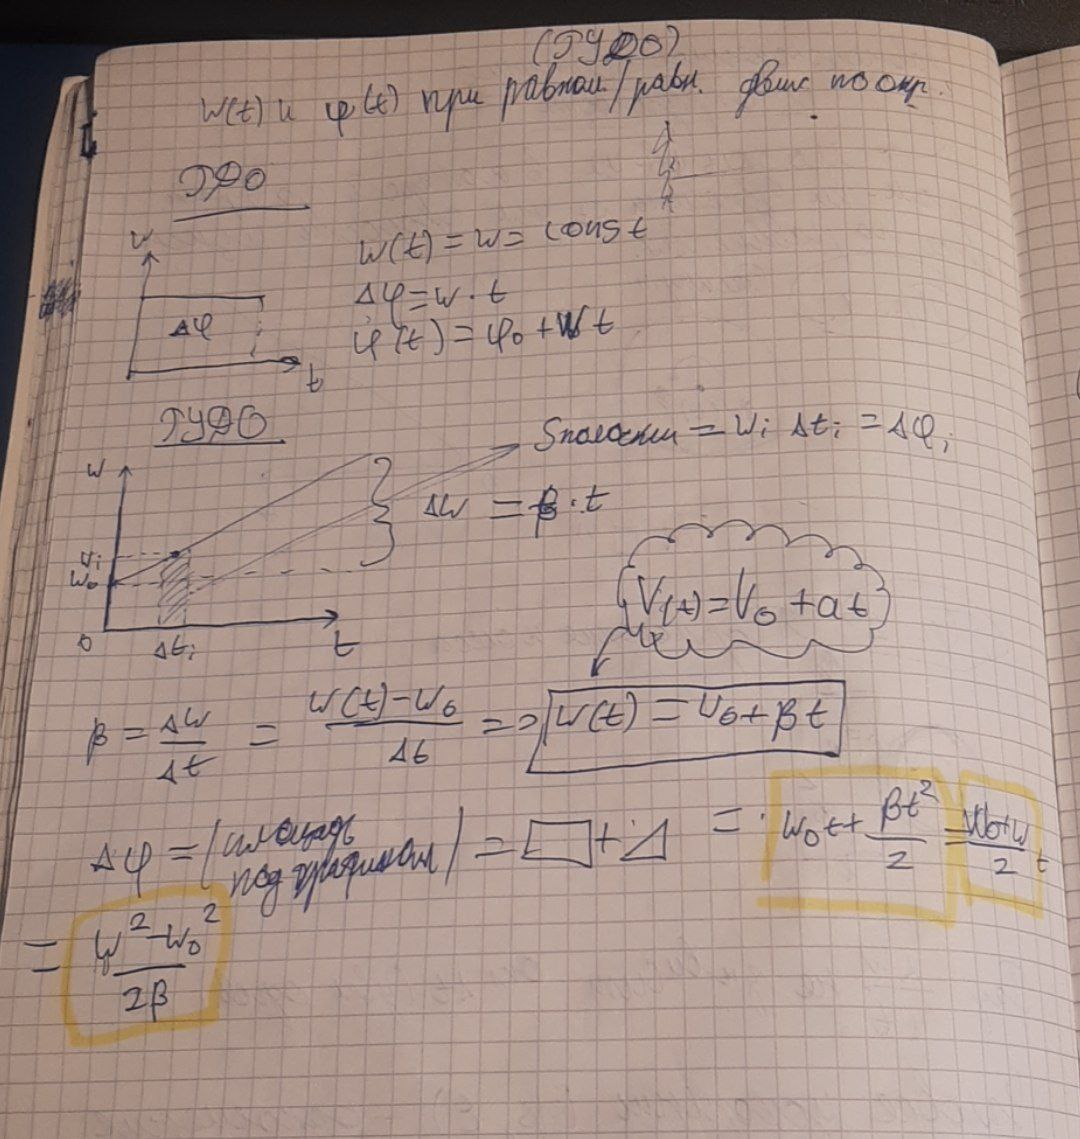 (РУДО)
W(t) и φ(t) при равном./равн. движ по окр.
РДО
W
Δφ
t
W(t) = W = const
Δφ = W · t
φ(t) = φ₀ + Wt
РУДО
W
Wᵢ
W₀
0
Δtᵢ
t
Sполоски = Wᵢ Δtᵢ = Δφᵢ
ΔW = β · t
V(t) = V₀ + at
β = ΔW/Δt = (W(t) - W₀)/Δt => W(t) = W₀ + βt
Δφ = |площадь под графиком| = □ + ◿ = W₀t + βt²/2 = (W₀+W)/2 t
= (W² - W₀²)/2β